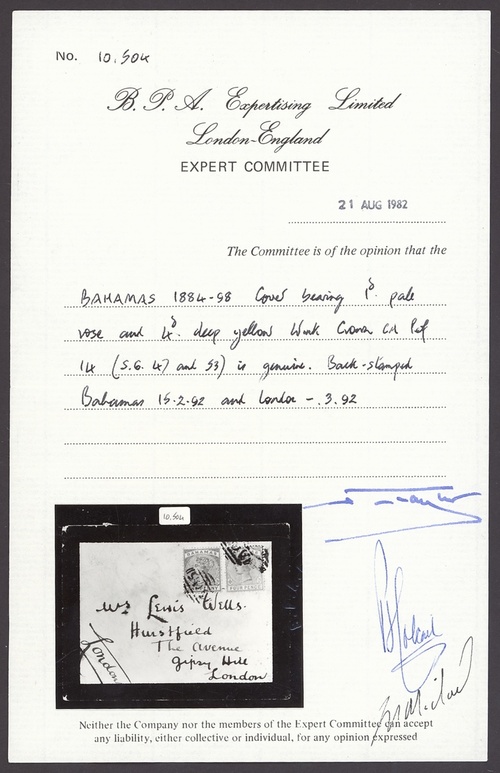 No. 10,504
B. P. A. Expertising Limited
London-England
EXPERT COMMITTEE
21 AUG 1982
The Committee is of the opinion that the
BAHAMAS 1884-98 Cover bearing 1d. pale
rose and 4d. deep yellow Wmk Crown CA Perf
14 (S.G. 47 and 53) is genuine. Back-stamped
Bahamas 15-2-92 and London -.3.92
10,504
BAHAMAS
FOUR PENCE
Mrs Lewis Wells.
Hurstfield
The Avenue
Gipsy Hill
London
London
Neither the Company nor the members of the Expert Committee can accept
any liability, either collective or individual, for any opinion expressed